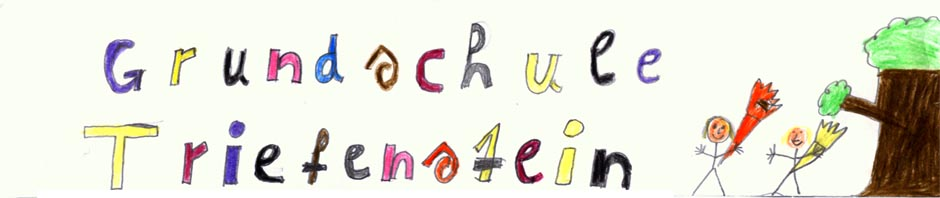 Grundschule
Triefenstein